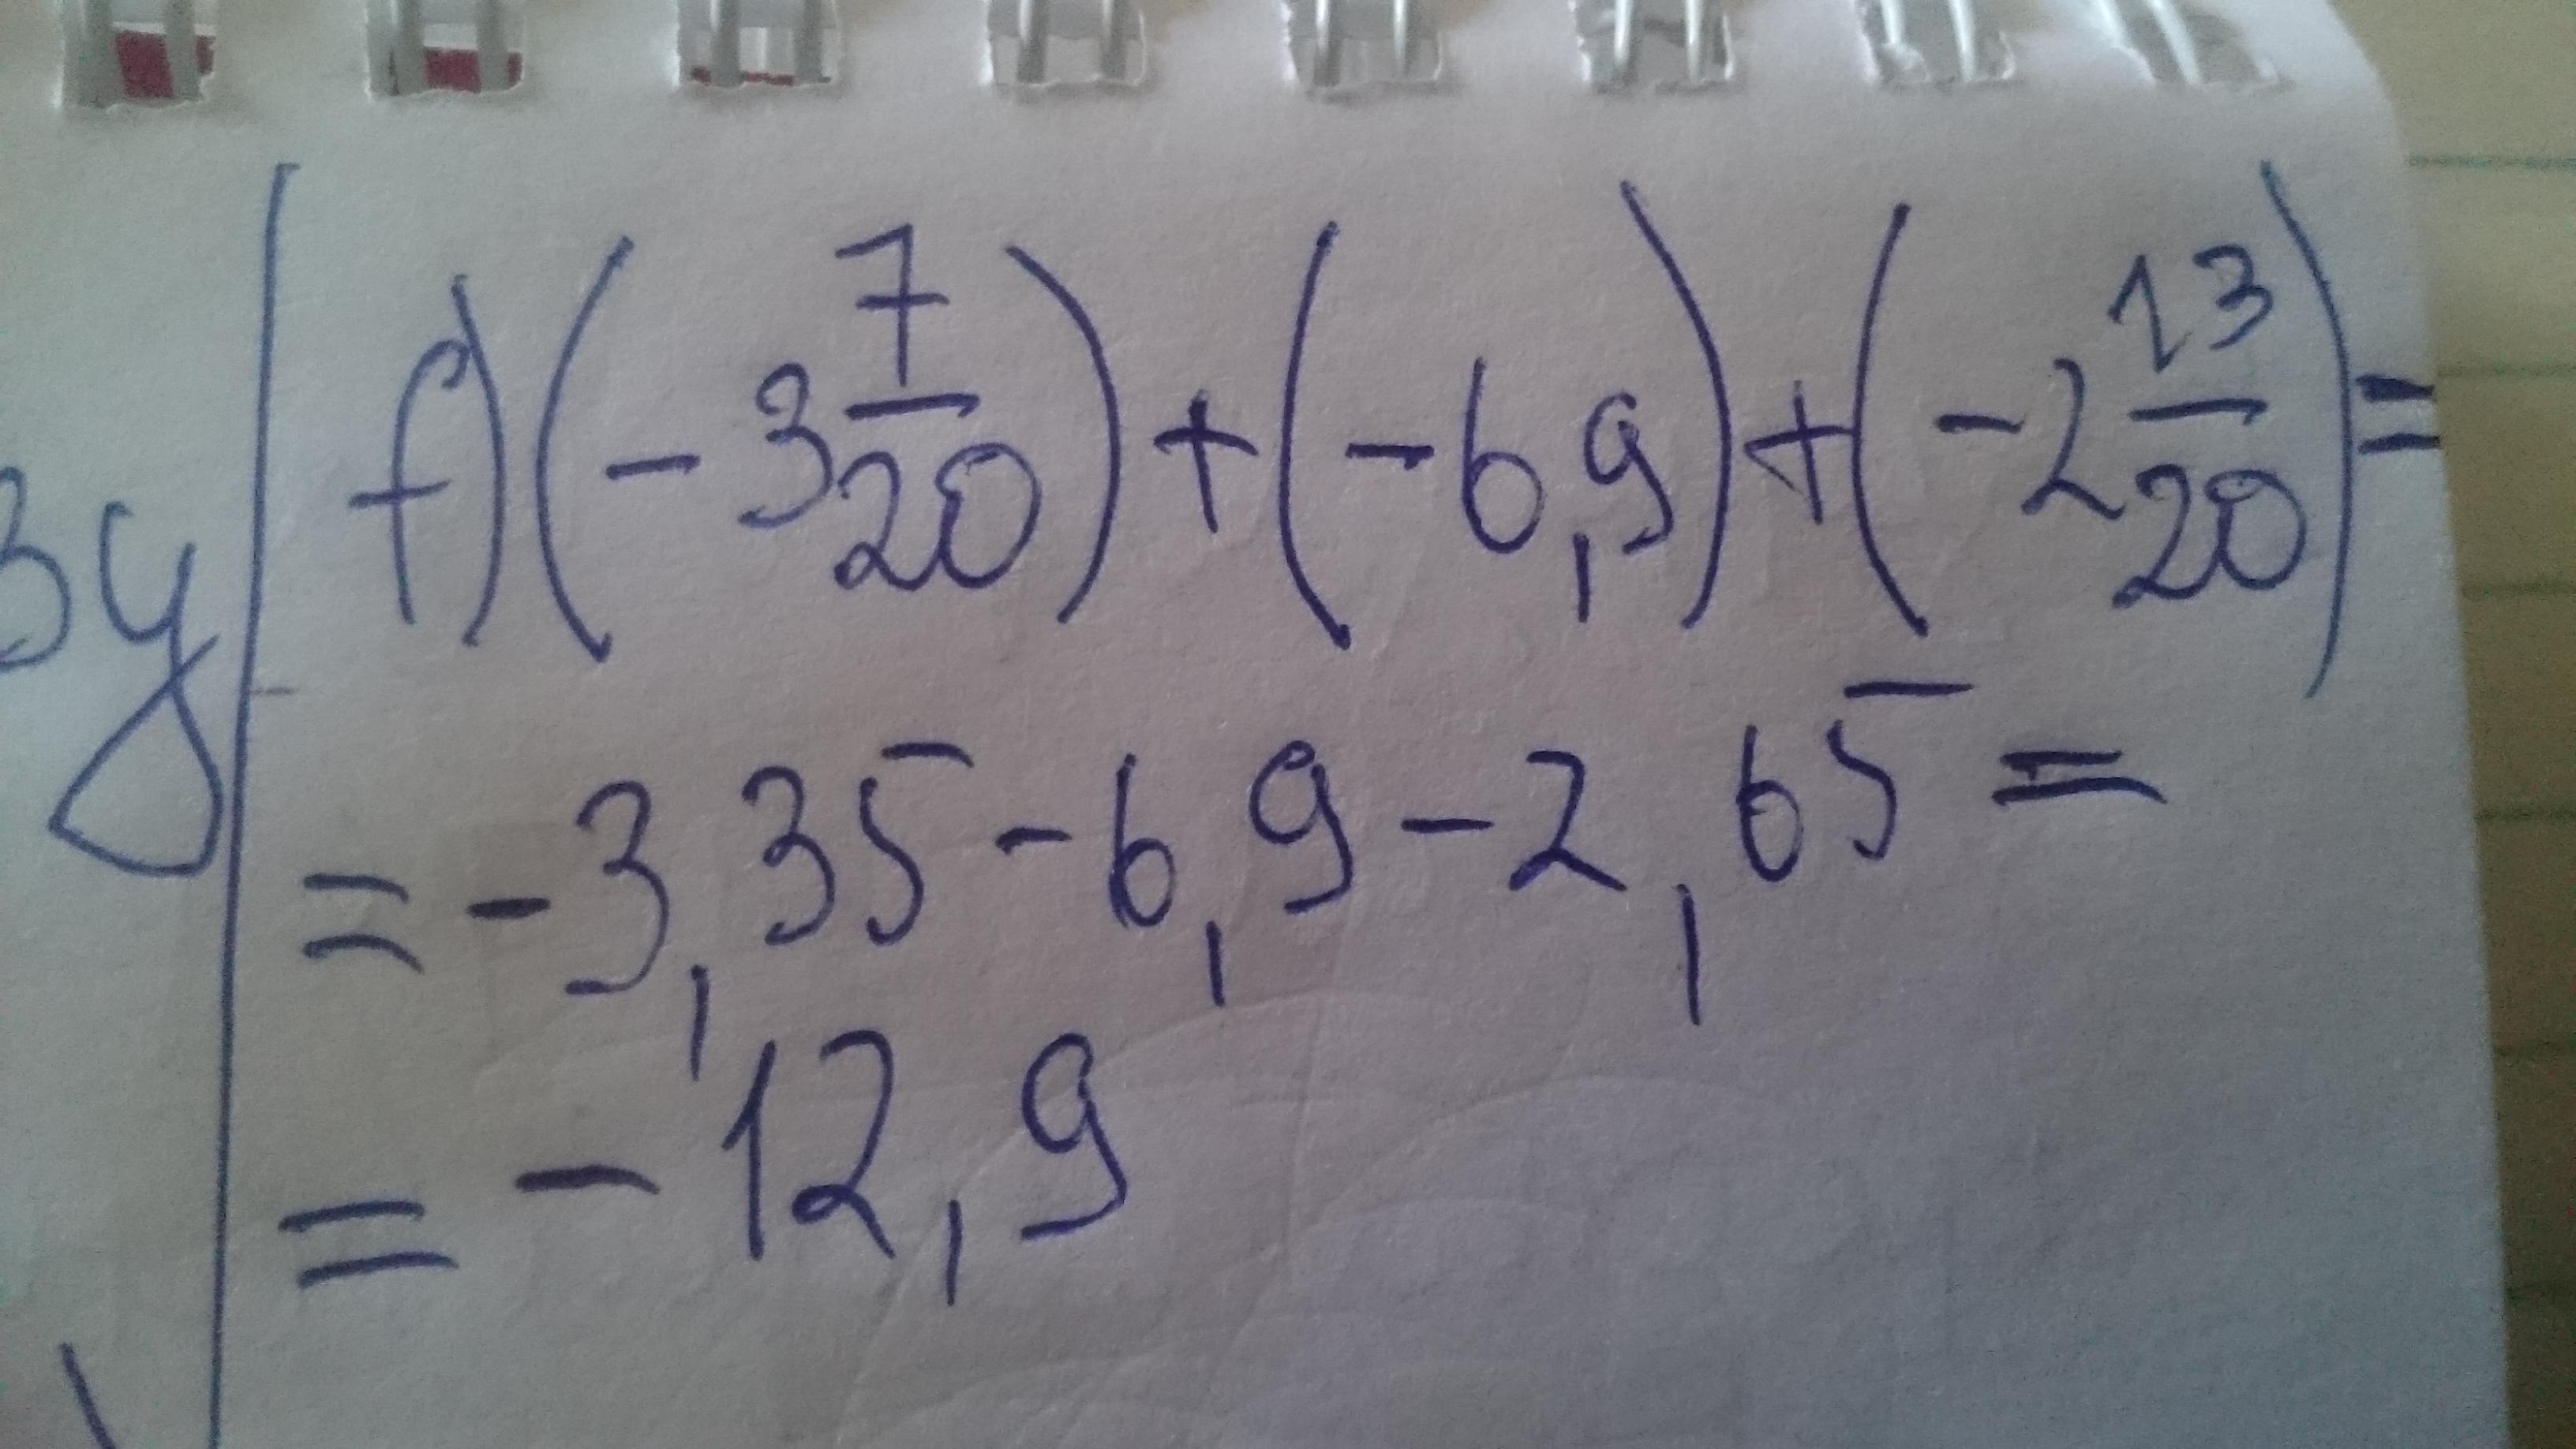 f) (-3 7/20) + (-6,9) + (-2 13/20) =
= -3,35 - 6,9 - 2,65 =
= - 12,9